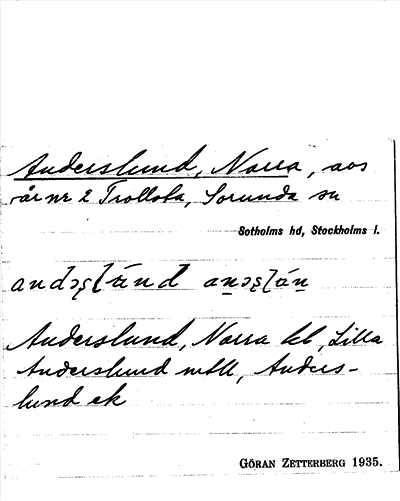 Anderslund, Norra, avs
år nr 2 Trollsta, Sorunda sn
Sotholms hd, Stockholms l.
Anderslund, Norra lht, Lilla
Anderslund mtll, Anders-
lund ek
GÖRAN ZETTERBERG 1935.